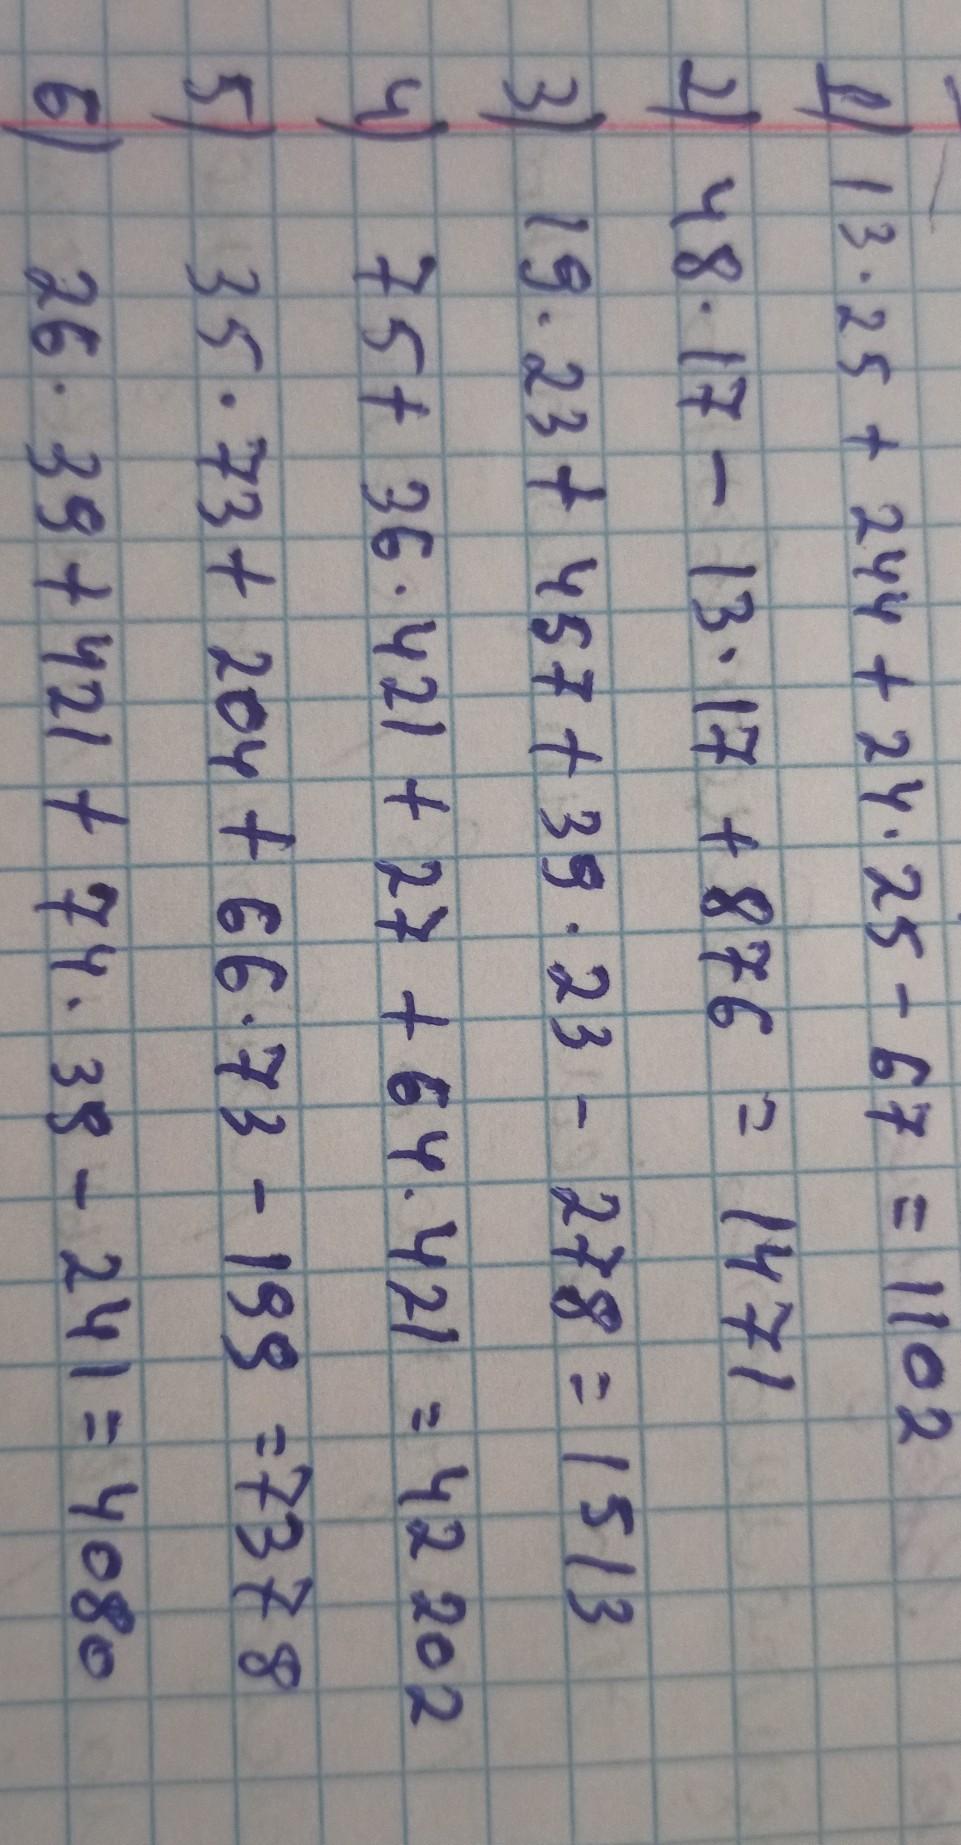 1) 13·25 + 244 + 24·25 - 67 = 1102
2) 48·17 - 13·17 + 876 = 1471
3) 19·23 + 457 + 39·23 - 278 = 1513
4) 75 + 36·421 + 27 + 64·421 = 42202
5) 35·73 + 204 + 66·73 - 199 = 7378
6) 26·39 + 421 + 74·39 - 241 = 4080